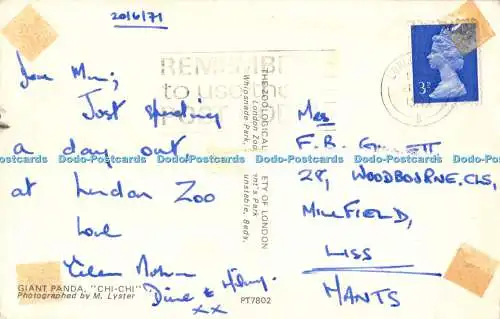 20/6/71
Dear Mum,
Just spending
a day out
at London Zoo
Love
Diane &
xx
GIANT PANDA, "CHI-CHI"
Photographed by M. Lyster
PT7802
REMEMBER
to use the
POST CODE
THE ZOOLOGICAL ETY OF LONDON
London Zoo, nt's Park
Whipsnade Park, unstable, Beds.
3P
Mrs
F. R.
28, WOODBOURNE, CLS,
MILLFIELD,
LISS
HANTS
Dodo-Postcards Dodo-Postcards Dodo-Postcards Dodo-Postcards Dodo-Postcards Dodo-Postcards Dodo-Postcards